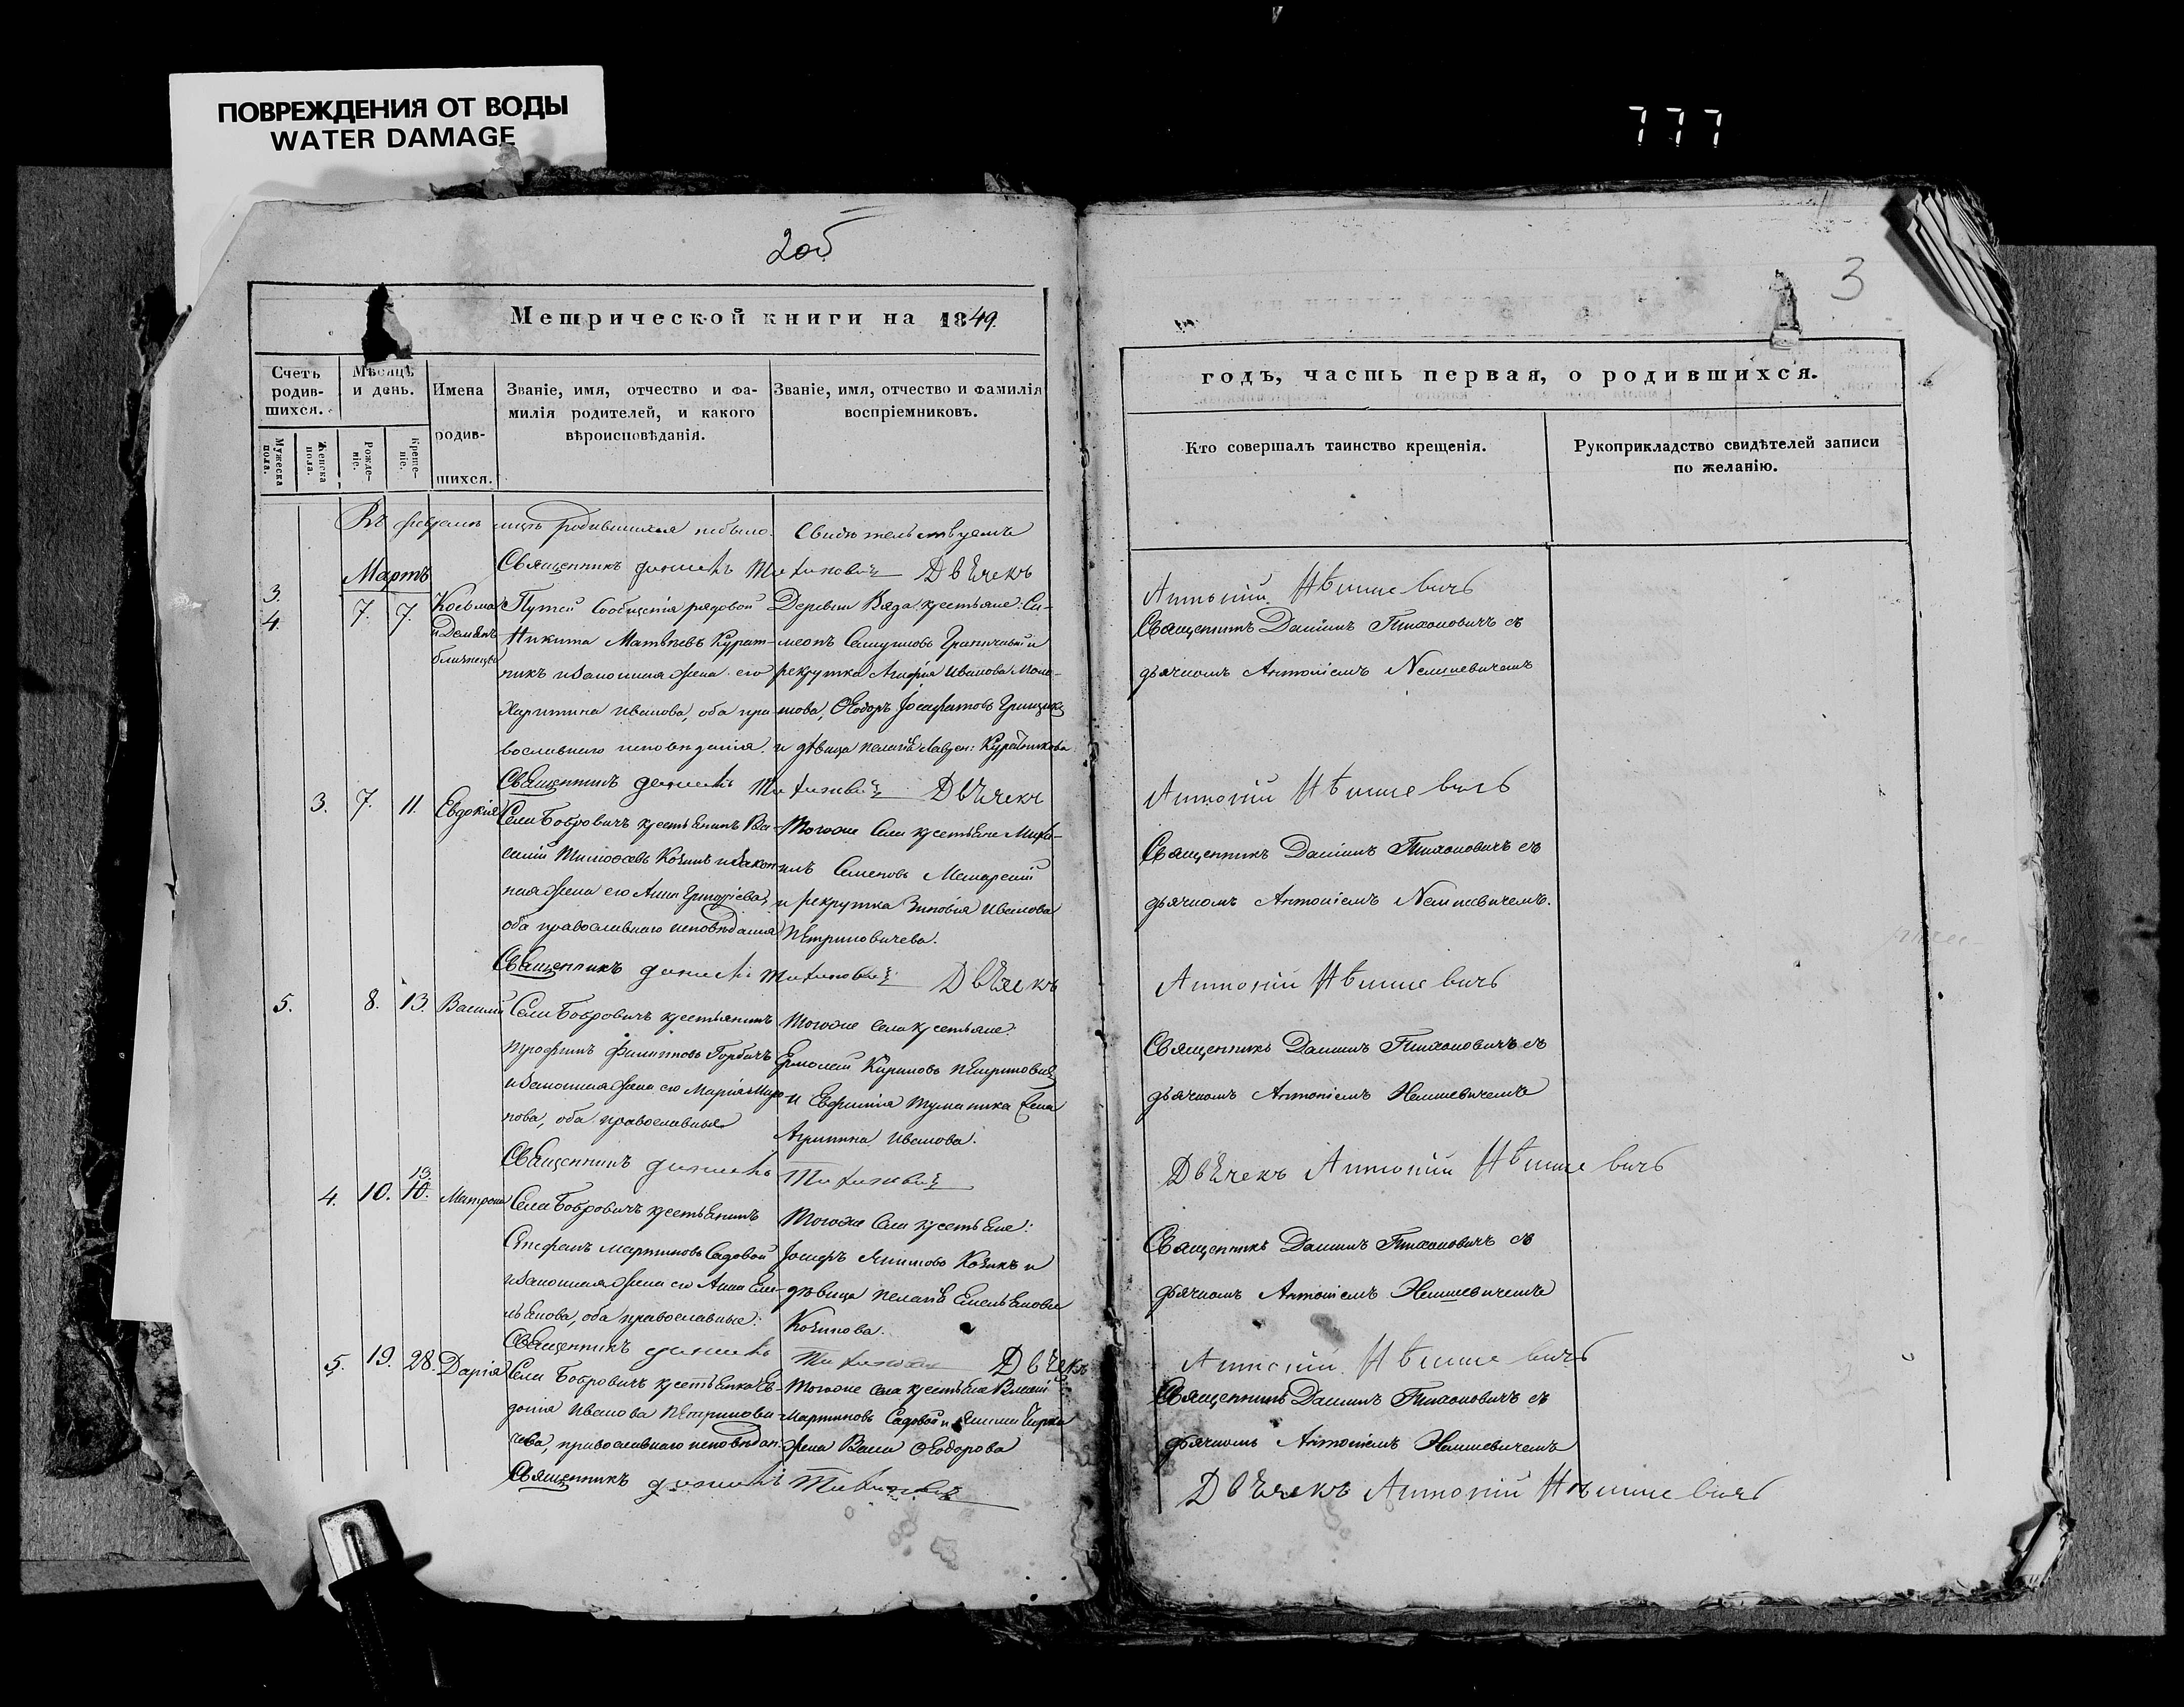 ПОВРЕЖДЕНИЯ ОТ ВОДЫ
WATER DAMAGE
777
2об
3
Метрической книги на 1849.
Счетъ родив-шихся.
Мѣсяцъ и день.
Имена родив-шихся.
Званіе, имя, отчество и фа-
милія родителей, и какого
вѣроисповѣданія.
Званіе, имя, отчество и фамилія
воспріемниковъ.
Мужеска пола.
Женска пола.
Рожде-ніе.
Креще-ніе.
Въ февралѣ родившихся небыло. Свидѣтельствуемъ
Священникъ Даніилъ Тихановичъ Дьячекъ
Мартъ
3.
4.
7. 7.
Косьма
и Демьянъ
близнецы
Путей Сообщенія рядовой
Никита Матвѣевъ Курат-
никъ изаконная жена его
Харитина Иванова, оба пра-
вославнаго исповѣданія.
Деревни Вяда крестьяне: Си-
меонъ
рекрутка Иванова
Ѳеодоръ Іосафатовъ
и дѣвица Пелагія Куратникова
Священникъ Даніилъ Тихановичъ Дьячекъ
3. 7. 11. Евдокія
Села Бобровичъ крестьянинъ Ва-
силій Тимоѳеевъ Кочинъ изакон-
ная жена его Анна Григоріева,
оба православнаго исповѣданія
Тогоже Села крестьяне Миха-
илъ Семеновъ
и рекрутка Зиновія Иванова
Петриновичева.
Священникъ Даніилъ Тихановичъ Дьячекъ
5. 8. 13. Василій
Села Бобровичъ крестьянинъ
Трофимъ Филиповъ Горбачъ
изаконная жена его Марія Миро-
нова, оба православныя
Тогоже села крестьяне:
Ермолай Кириловъ Петриновичъ
и жена
Агрипина Иванова.
Священникъ Даніилъ Тихановичъ
4. 10. 13. 10. Матрона
Села Бобровичъ крестьянинъ
Стефанъ Мартиновъ Садовой
изаконная жена его Анна Еме-
льянова, оба православные:
Тогоже Села крестьяне:
Іосифъ Козакъ и
дѣвица Пелагія Емельянова
Кочинова.
Священникъ Даніилъ Тихановичъ Дьячекъ
5. 19. 28. Дарія
Села Бобровичъ крестьянка Ев-
докія Иванова Петринови-
чева, православнаго исповѣдан.
Тогоже села крестьяне
Мартиновъ Садовой и
жена Ѳеодорова
Священникъ Даніилъ Тихановичъ
годъ, часть первая, о родившихся.
Кто совершалъ таинство крещенія.
Рукоприкладство свидѣтелей записи
по желанію.
Антоній Нѣмшевичъ
Священникъ Даніилъ Тихановичъ съ
дьячкомъ Антоніемъ Немшевичемъ
Антоній Нѣмшевичъ
Священникъ Даніилъ Тихановичъ съ
дьячкомъ Антоніемъ Немшевичемъ.
Антоній Нѣмшевичъ
Священникъ Даніилъ Тихановичъ съ
дьячкомъ Антоніемъ Немшевичемъ
Дьячекъ Антоній Нѣмшевичъ
Священникъ Даніилъ Тихановичъ съ
дьячкомъ Антоніемъ Немшевичемъ
Антоній Нѣмшевичъ
Священникъ Даніилъ Тихановичъ съ
дьячкомъ Антоніемъ Немшевичемъ
Дьячекъ Антоній Нѣмшевичъ